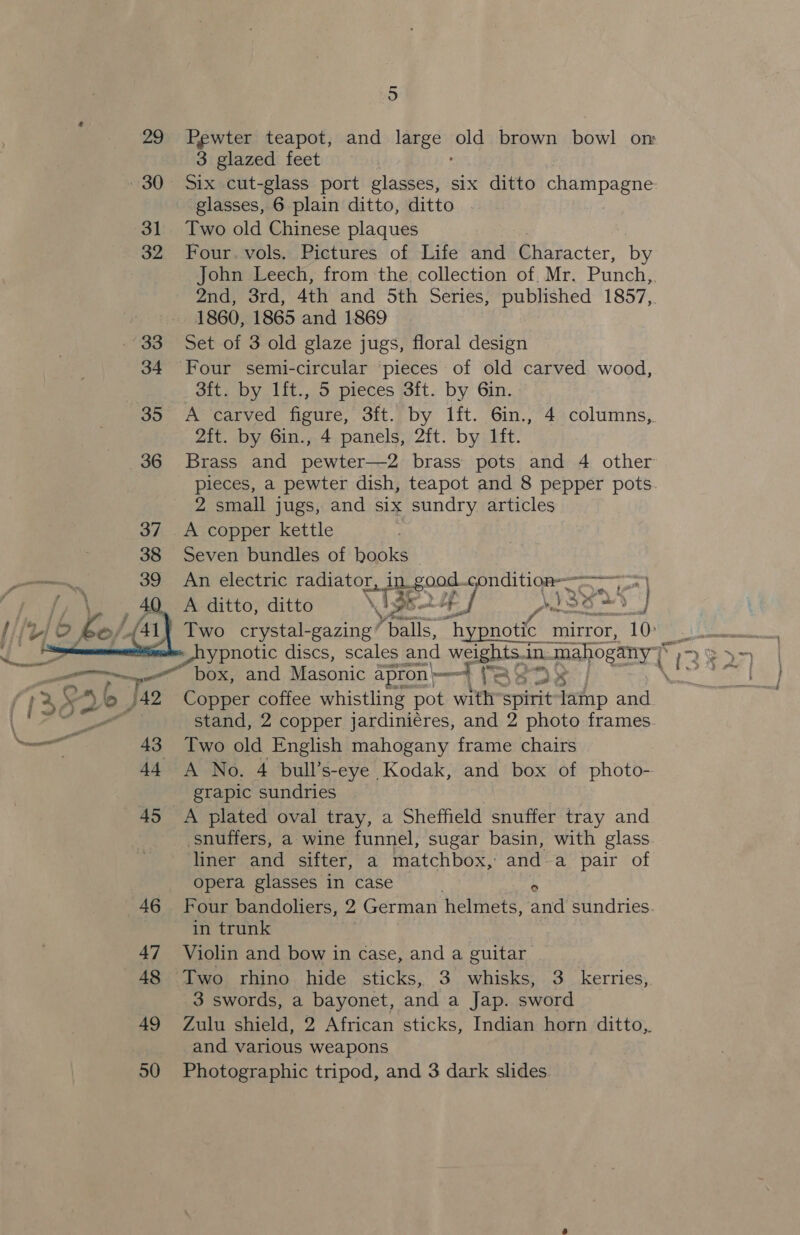 5
29 Pewter teapot, and large old brown bowl on
3 glazed feet
30 Six cut-glass port glasses, six ditto champagne
glasses, 6 plain ditto, ditto
31 Two old Chinese plaques
32 Four vols. Pictures of Life and Character, by
John Leech, from the collection of Mr. Punch,
2nd, 3rd, 4th and 5th Series, published 1857,
1860, 1865 and 1869
33 Set of 3 old glaze jugs, floral design
34 Four semi-circular pieces of old carved wood,
3ft. by 1ft., 5 pieces 3ft. by 6in.
35 A carved figure, 3ft. by 1ft. 6in., 4 columns,
2ft. by 6in., 4 panels, 2ft. by 1ft.
36 Brass and pewter—2 brass pots and 4 other
pieces, a pewter dish, teapot and 8 pepper pots
2 small jugs, and six sundry articles
37 A copper kettle
38 Seven bundles of books
39 An electric radiator, in good condition
40 A ditto, ditto
41 Two crystal-gazing balls, hypnotic mirror, 10
hypnotic discs, scales and weights in mahogany
box, and Masonic apron
42 Copper coffee whistling pot with spirit lamp and
stand, 2 copper jardinières, and 2 photo frames
43 Two old English mahogany frame chairs
44 A No. 4 bull's-eye Kodak, and box of photo-
grapic sundries
45 A plated oval tray, a Sheffield snuffer tray and
snuffers, a wine funnel, sugar basin, with glass
liner and sifter, a matchbox, and a pair of
opera glasses in case
46 Four bandoliers, 2 German helmets, and sundries
in trunk
47 Violin and bow in case, and a guitar
48 Two rhino hide sticks, 3 whisks, 3 kerries,
3 swords, a bayonet, and a Jap. sword
49 Zulu shield, 2 African sticks, Indian horn ditto,
and various weapons
50 Photographic tripod, and 3 dark slides